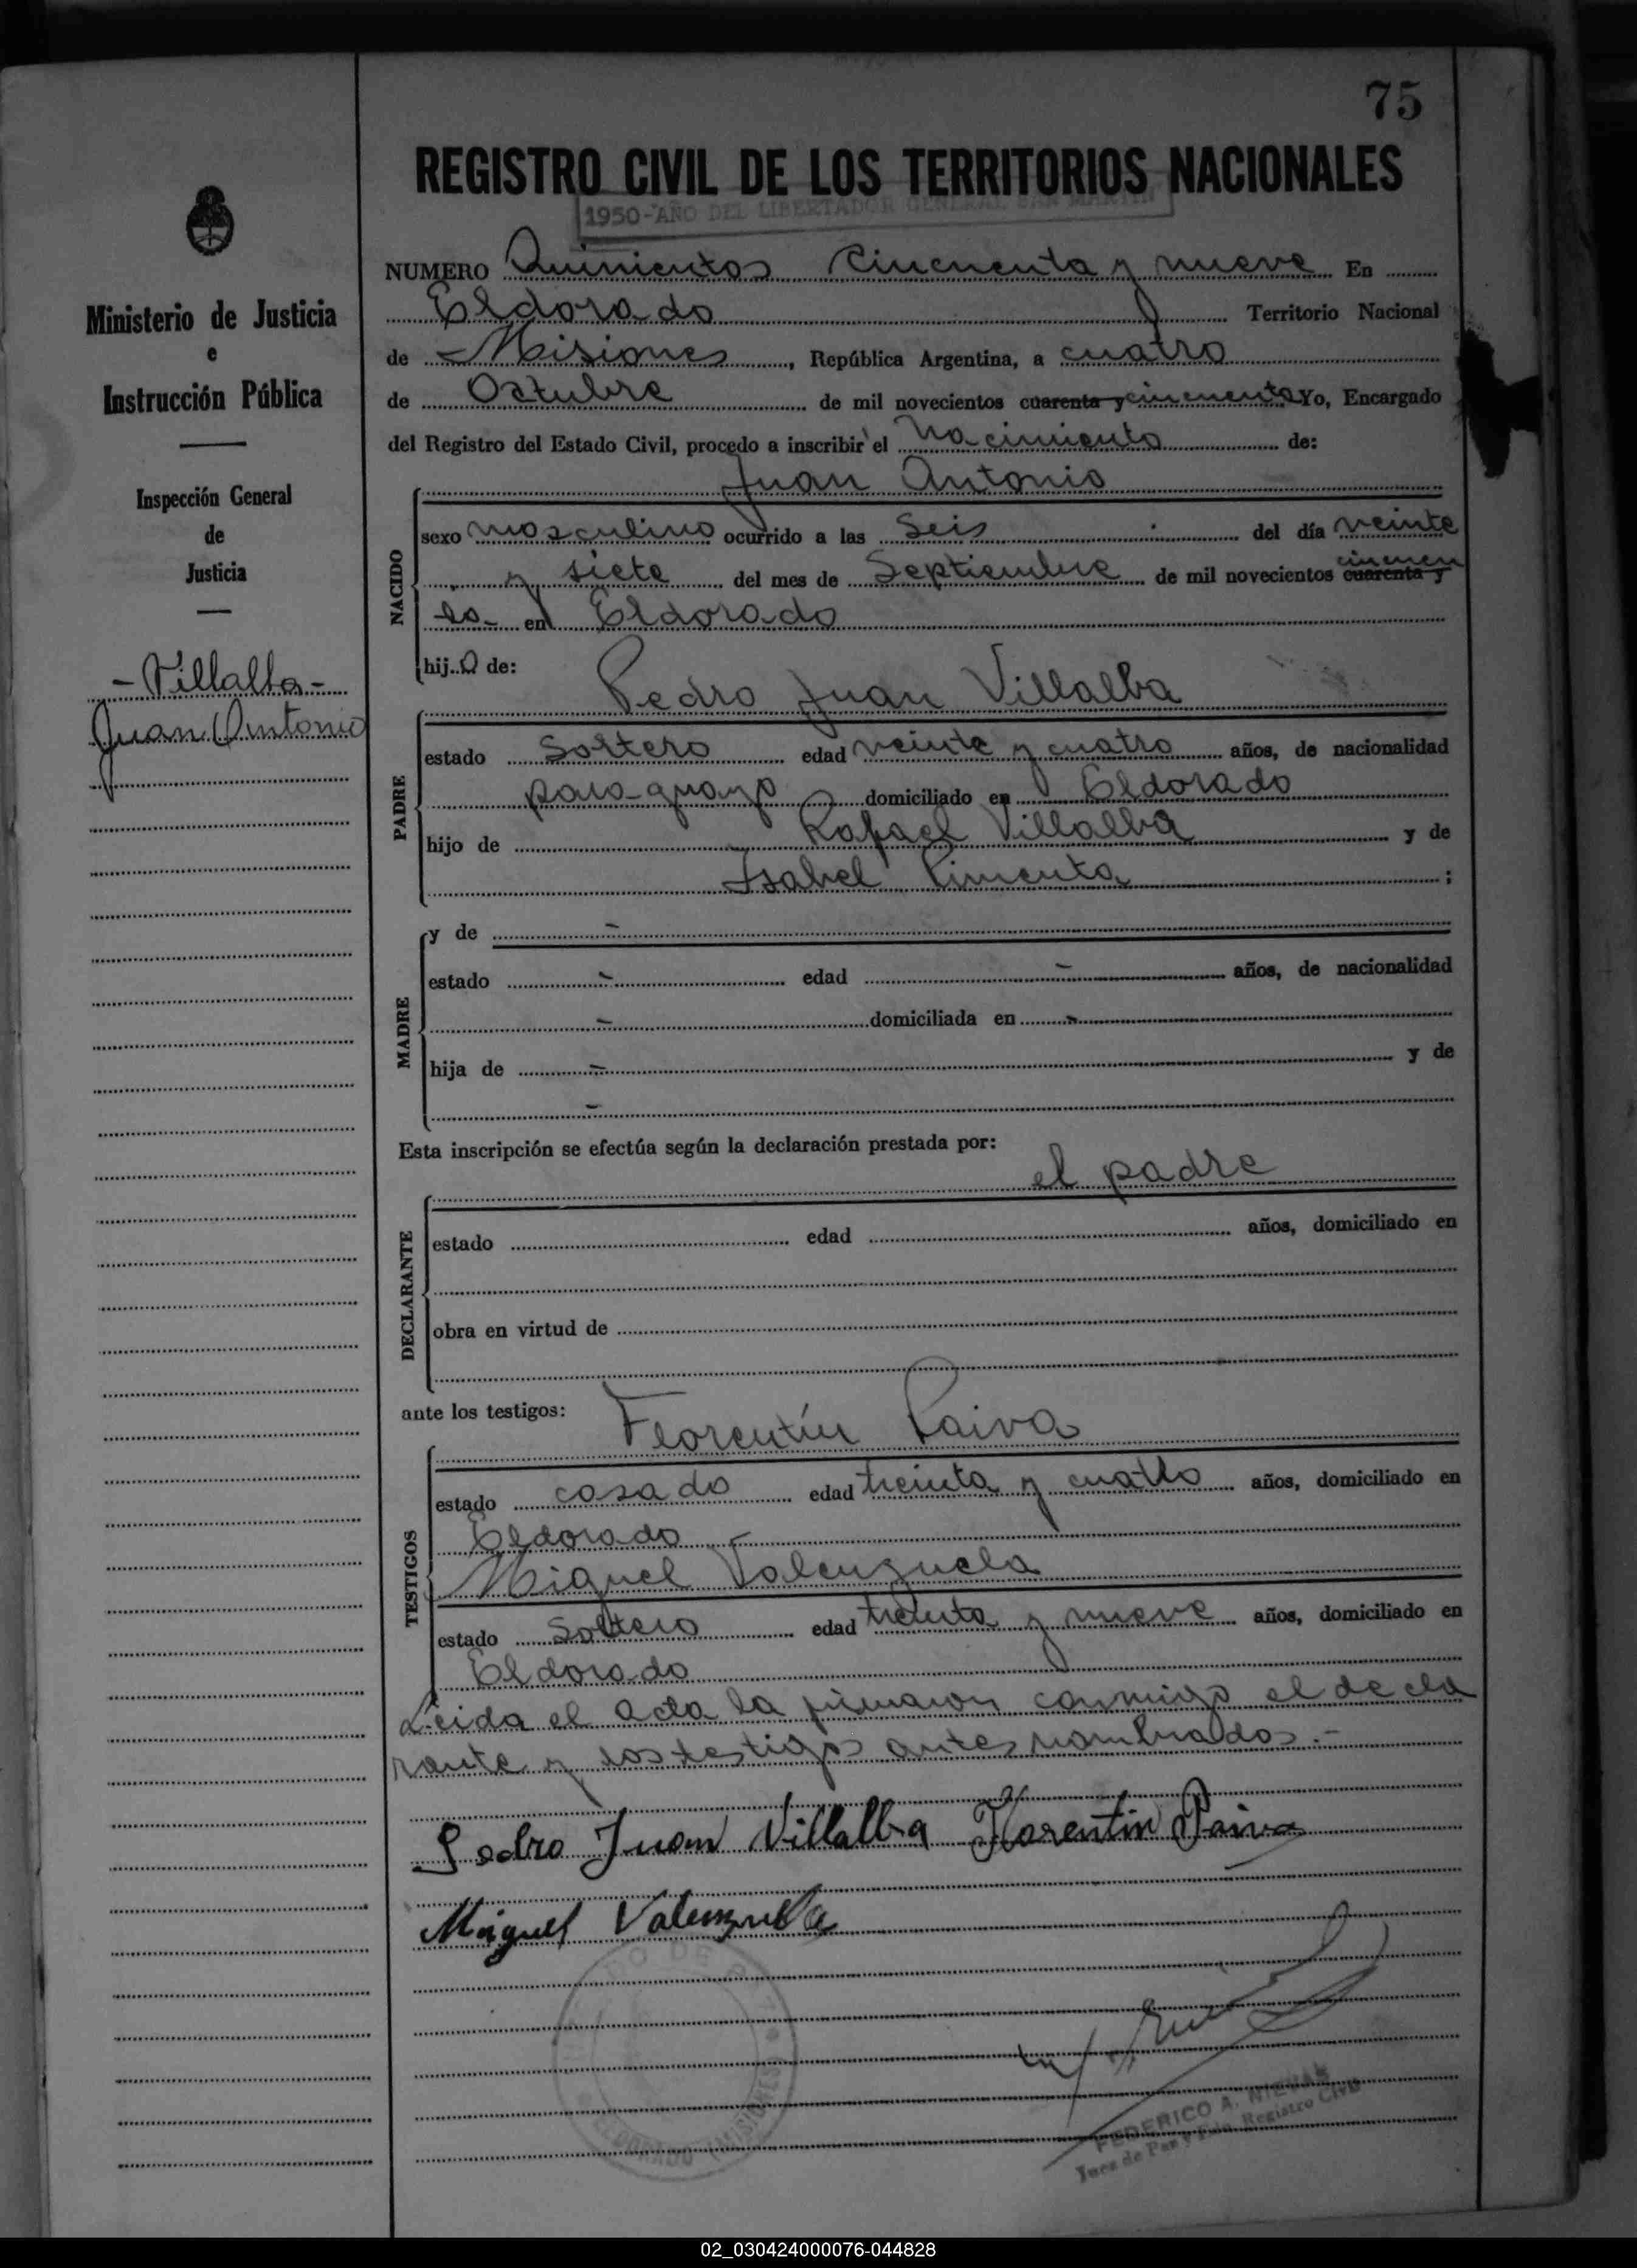 75
REGISTRO CIVIL DE LOS TERRITORIOS NACIONALES
1950-AÑO DEL LIBERTADOR GENERAL SAN MARTIN
Ministerio de Justicia
e
Instrucción Pública
Inspección General
de
Justicia
- Villalba -
Juan Antonio
NUMERO Quinientos Cincuenta y nueve En
Eldorado Territorio Nacional
de Misiones, República Argentina, a cuatro
de Octubre de mil novecientos cuarenta y cincuenta Yo, Encargado
del Registro del Estado Civil, procedo a inscribir el nacimiento de:
Juan Antonio
NACIDO
sexo masculino ocurrido a las Seis del día veinte
y siete del mes de Septiembre de mil novecientos cuarenta y cincuen
ta- en Eldorado
hijo de:
Pedro Juan Villalba
PADRE
estado Soltero edad veinte y cuatro años, de nacionalidad
paraguayo domiciliado en Eldorado
hijo de Rafael Villalba y de
Isabel Pimenta ;
MADRE
y de -
estado - edad - años, de nacionalidad
- domiciliada en -
hija de - y de
-
Esta inscripción se efectúa según la declaración prestada por:
el padre
DECLARANTE
estado edad años, domiciliado en
obra en virtud de
ante los testigos:
Florentín Paiva
TESTIGOS
estado casado edad treinta y cuatro años, domiciliado en
Eldorado
Miguel Valenzuela
estado Soltero edad treinta y nueve años, domiciliado en
Eldorado
Leida el acta la firmaron conmigo el decla
rante y los testigos antes nombrados.-
Pedro Juan Villalba Florentin Paiva
Miguel Valenzuela
ELDORADO (MISIONES)
FEDERICO A. NIEVAS
Juez de Paz y Edo. Registro Civil
02_030424000076-044828